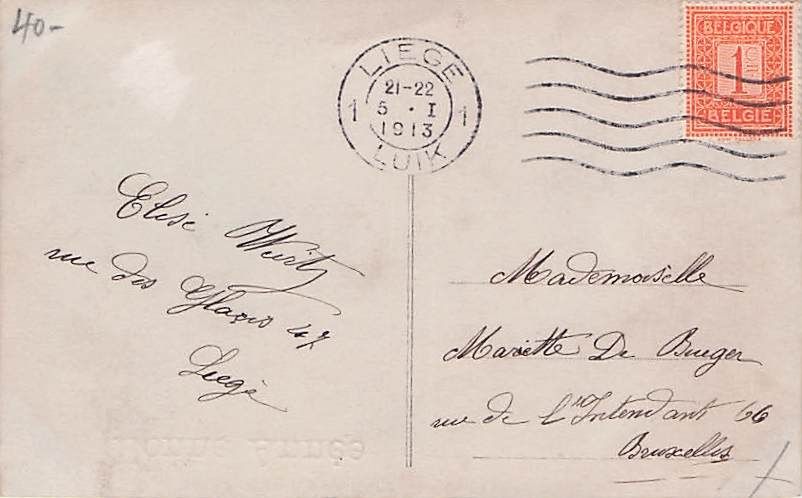 40-
LIEGE
21-22
1 5 · I 1
1913
LUIK
BELGIQUE
1
BELGIË
Elise Wurtz
rue des Glacis 47
Liège
Mademoiselle
Mariette De Bueger
rue de l'Intendant 66
Bruxelles